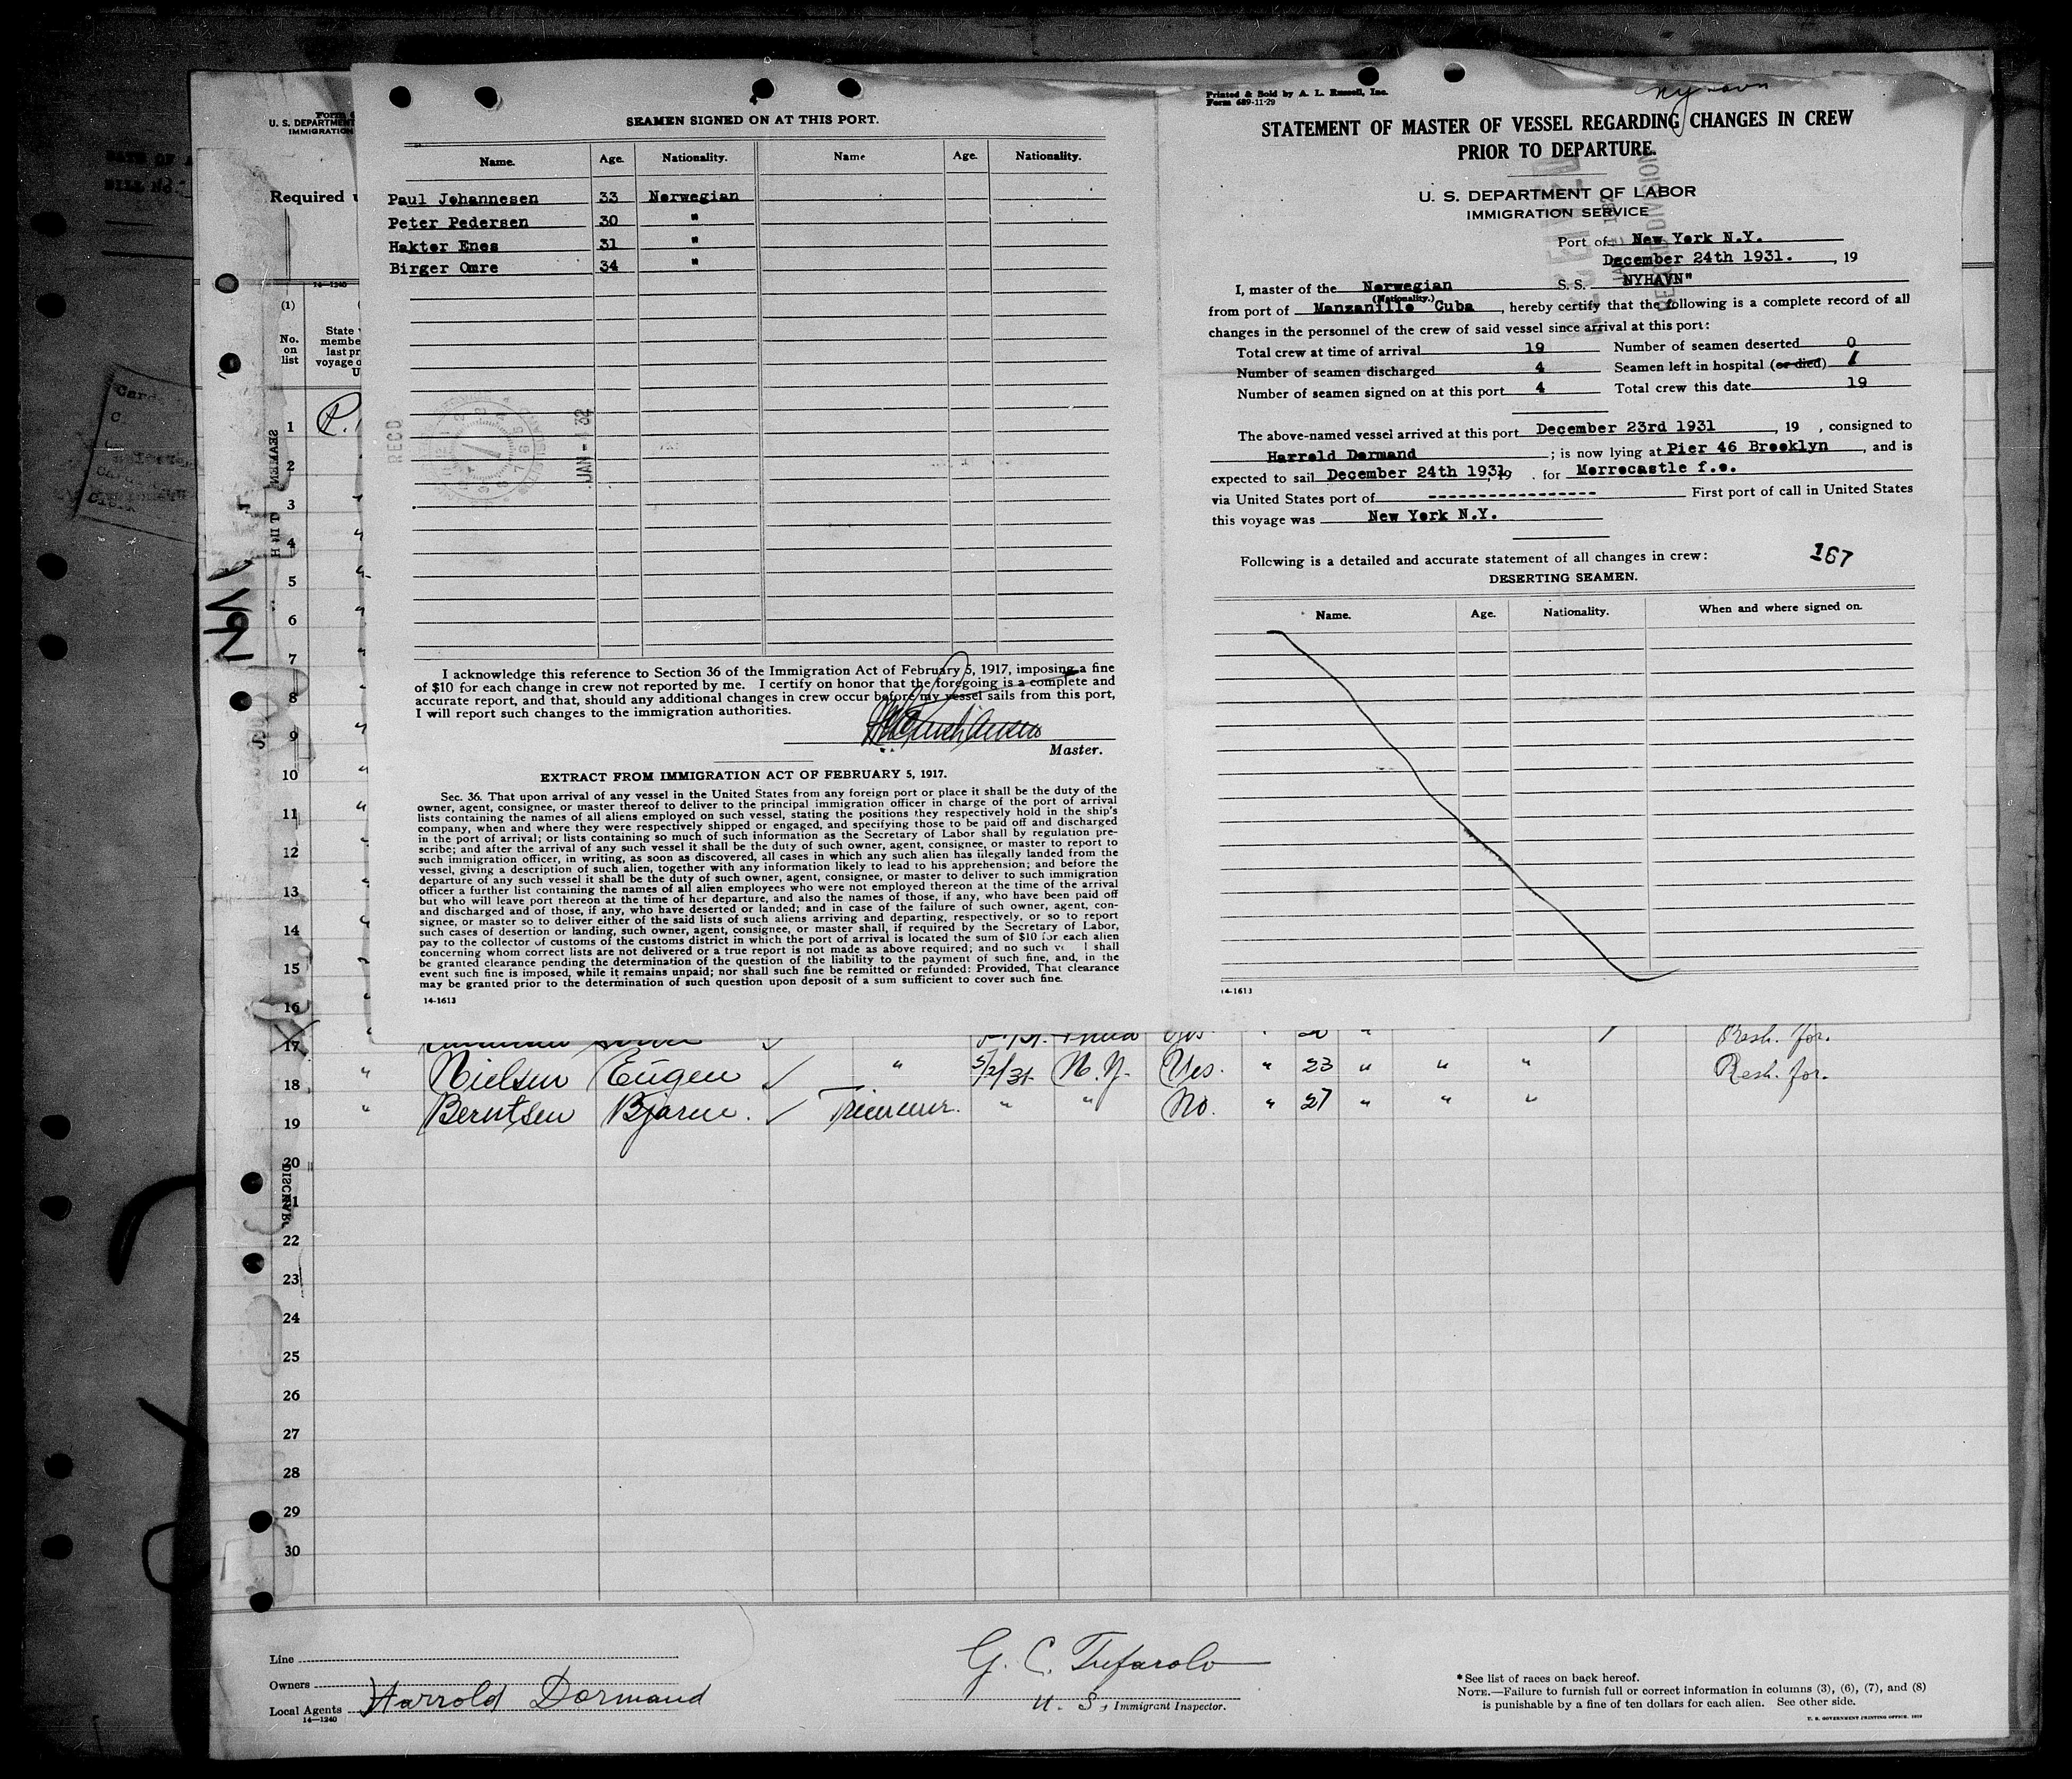 SEAMEN SIGNED ON AT THIS PORT.
Name. Age. Nationality. Name Age. Nationality.
Paul Johannesen 33 Norwegian
Peter Pedersen 30 "
Hakter Enes 31 "
Birger Omre 34 "
RECD
JAN - 1 32
I acknowledge this reference to Section 36 of the Immigration Act of February 5, 1917, imposing a fine
of $10 for each change in crew not reported by me. I certify on honor that the foregoing is a complete and
accurate report, and that, should any additional changes in crew occur before my vessel sails from this port,
I will report such changes to the immigration authorities.
Master.
EXTRACT FROM IMMIGRATION ACT OF FEBRUARY 5, 1917.
Sec. 36. That upon arrival of any vessel in the United States from any foreign port or place it shall be the duty of the
owner, agent, consignee, or master thereof to deliver to the principal immigration officer in charge of the port of arrival
lists containing the names of all aliens employed on such vessel, stating the positions they respectively hold in the ship's
company, when and where they were respectively shipped or engaged, and specifying those to be paid off and discharged
in the port of arrival; or lists containing so much of such information as the Secretary of Labor shall by regulation pre-
scribe; and after the arrival of any such vessel it shall be the duty of such owner, agent, consignee, or master to report to
such immigration officer, in writing, as soon as discovered, all cases in which any such alien has illegally landed from the
vessel, giving a description of such alien, together with any information likely to lead to his apprehension; and before the
departure of any such vessel it shall be the duty of such owner, agent, consignee, or master to deliver to such immigration
officer a further list containing the names of all alien employees who were not employed thereon at the time of the arrival
but who will leave port thereon at the time of her departure, and also the names of those, if any, who have been paid off
and discharged and of those, if any, who have deserted or landed; and in case of the failure of such owner, agent, con-
signee, or master so to deliver either of the said lists of such aliens arriving and departing, respectively, or so to report
such cases of desertion or landing, such owner, agent, consignee, or master shall, if required by the Secretary of Labor,
pay to the collector of customs of the customs district in which the port of arrival is located the sum of $10 for each alien
concerning whom correct lists are not delivered or a true report is not made as above required; and no such ve l shall
be granted clearance pending the determination of the question of the liability to the payment of such fine, and, in the
event such fine is imposed, while it remains unpaid; nor shall such fine be remitted or refunded: Provided, That clearance
may be granted prior to the determination of such question upon deposit of a sum sufficient to cover such fine.
14-1613
Printed & Sold by A. L. Russell, Inc.
Form 689-11-29
Nyhavn
STATEMENT OF MASTER OF VESSEL REGARDING CHANGES IN CREW
PRIOR TO DEPARTURE.
U. S. DEPARTMENT OF LABOR
IMMIGRATION SERVICE
Port of New York N.Y.
December 24th 1931. , 19
I, master of the Norwegian S. S. NYHAVN"
(Nationality.)
from port of Manzanillo Cuba , hereby certify that the following is a complete record of all
changes in the personnel of the crew of said vessel since arrival at this port:
Total crew at time of arrival 19 Number of seamen deserted 0
Number of seamen discharged 4 Seamen left in hospital (or died) 1
Number of seamen signed on at this port 4 Total crew this date 19
The above-named vessel arrived at this port December 23rd 1931 , 19 , consigned to
Harrold Dormand ; is now lying at Pier 46 Brooklyn , and is
expected to sail December 24th 1931 , 19 . for Morrocastle f.o.
via United States port of ----------------- First port of call in United States
this voyage was New York N.Y.
Following is a detailed and accurate statement of all changes in crew: 167
DESERTING SEAMEN.
Name. Age. Nationality. When and where signed on.
14-1613
U. S. DEPARTMENT
IMMIGRATION
Required
14-1240
(1)
No.
on
list
State
membe
last pr
voyage o
U
1
2
3
4
5
6
7
8
9
10
11
12
13
14
15
16
17 Resh. for.
18 " Nielsen Eugen ✓ " 5/2/31 N.Y. Yes. " 23 " " " Resh. for.
19 " Berntsen Bjarne. ✓ Trimmer. " " No. " 27 " " "
20
21
22
23
24
25
26
27
28
29
30
Line
Owners
Local Agents Harrold Dormand
14-1240
G. C. Tufarolo
U. S. Immigrant Inspector.
*See list of races on back hereof.
NOTE.—Failure to furnish full or correct information in columns (3), (6), (7), and (8)
is punishable by a fine of ten dollars for each alien. See other side.
U. S. GOVERNMENT PRINTING OFFICE. 1929